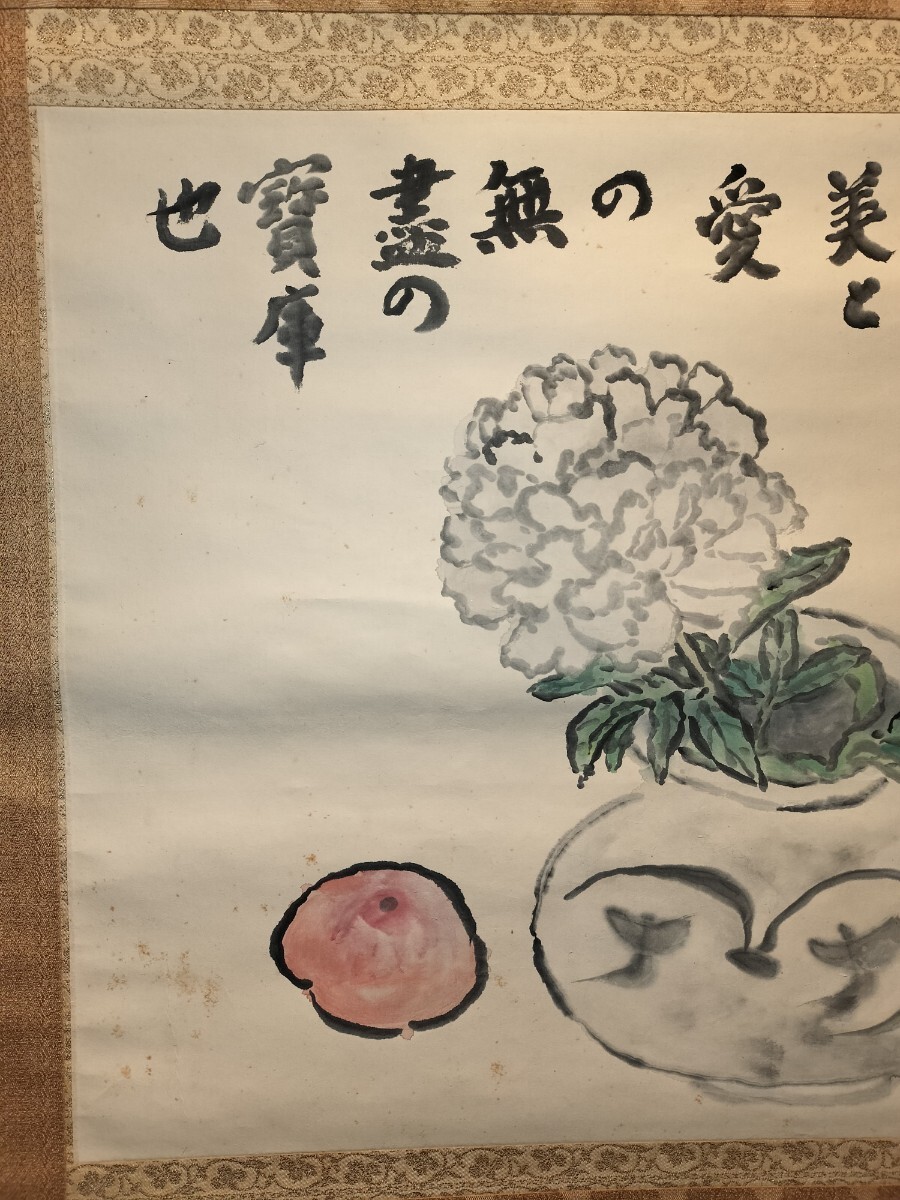 美と
愛
の
無
盡の
寶庫
也